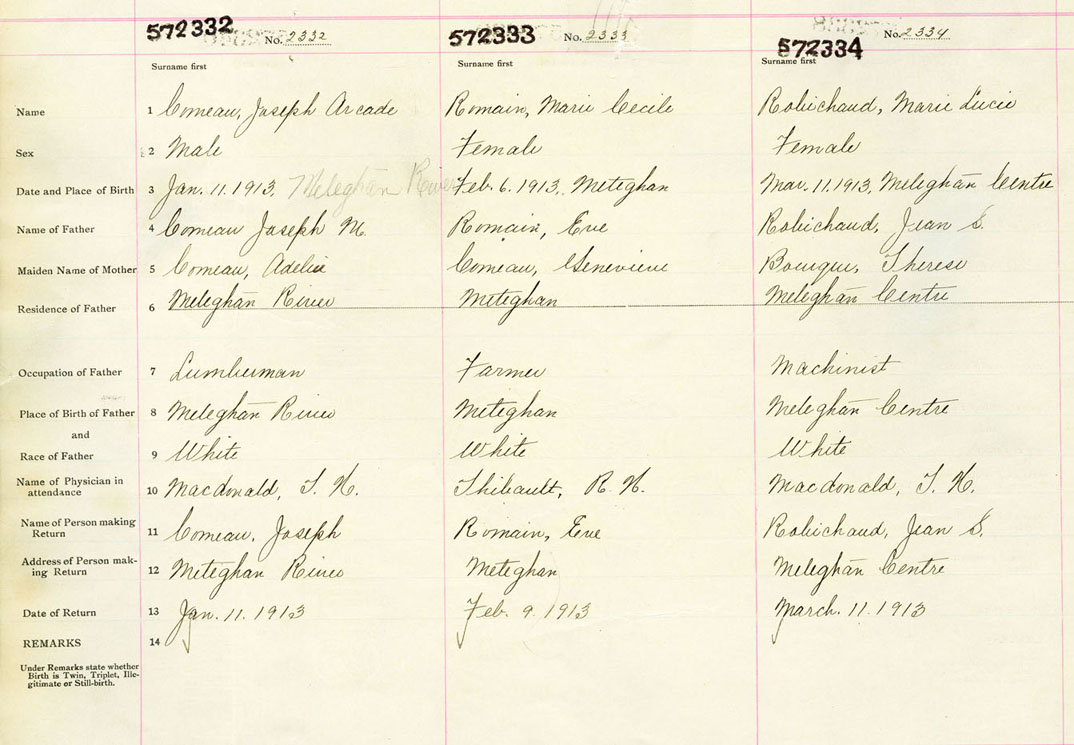 572332 No. 2332 572333 No. 2333 572334 No. 2334
Surname first Surname first Surname first
Name 1 Comeau, Joseph Arcade Romain, Marie Cecile Robichaud, Marie Lucie
Sex 2 Male Female Female
Date and Place of Birth 3 Jan. 11. 1913. Meteghan River Feb. 6. 1913. Meteghan Mar. 11. 1913, Meteghan Centre
Name of Father 4 Comeau Joseph M. Romain, Eve Robichaud, Jean S.
Maiden Name of Mother 5 Comeau, Adelie Comeau, Genevieve Bourque, Therese
Residence of Father 6 Meteghan River Meteghan Meteghan Centre
Occupation of Father 7 Lumberman Farmer Machinist
Place of Birth of Father 8 Meteghan River Meteghan Meteghan Centre
and
Race of Father 9 White White White
Name of Physician in
attendance 10 Macdonald, T. H. Thibault, R. H. Macdonald, T. H.
Name of Person making
Return 11 Comeau, Joseph Romain, Eve Robichaud, Jean S.
Address of Person mak-
ing Return 12 Meteghan River Meteghan Meteghan Centre
Date of Return 13 Jan. 11. 1913 Feb. 9. 1913 March. 11. 1913
REMARKS 14
Under Remarks state whether
Birth is Twin, Triplet, Ille-
gitimate or Still-birth.